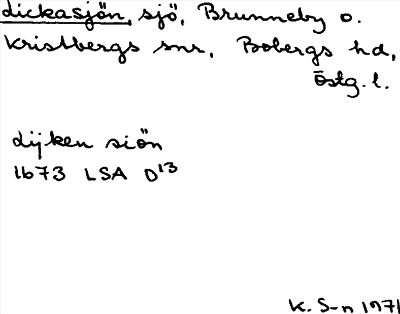 Dickasjön, sjö, Brunneby o.
Kristbergs snr, Bobergs hd,
Östg. l.
Dijken siön
1673 LSA D13
K. S-n 1971